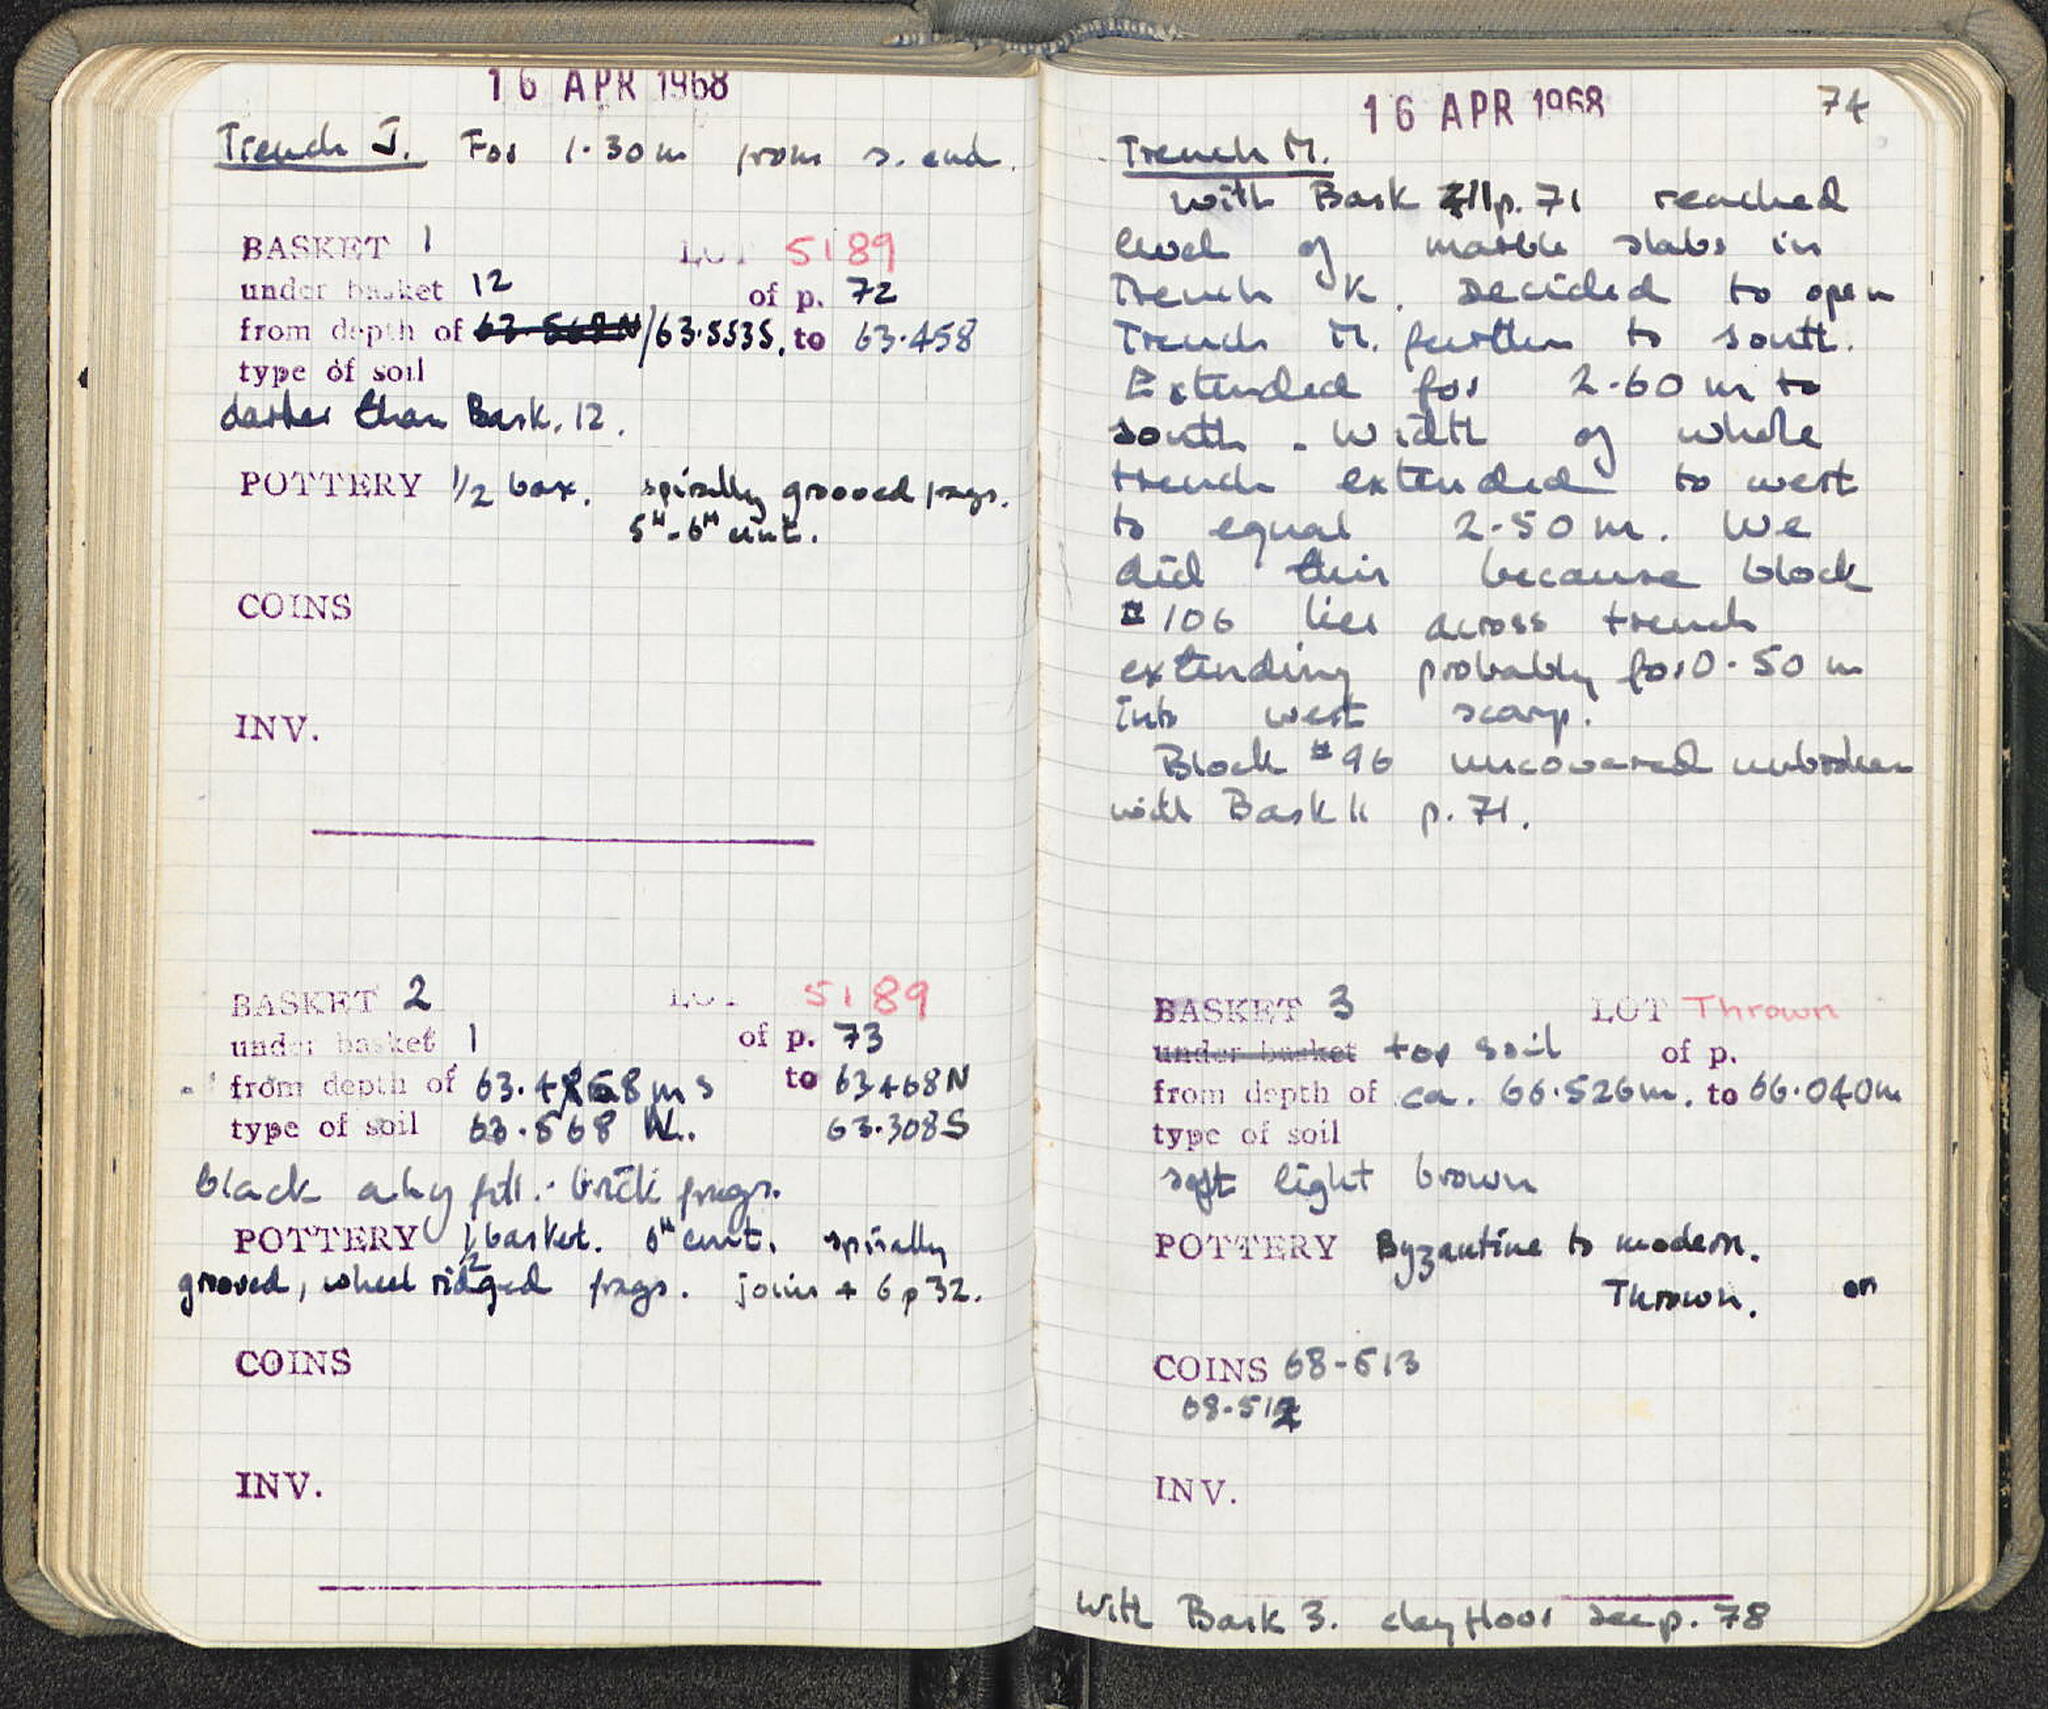 16 APR 1968
Trench J. For 1.30m from s. end.
BASKET 1 LOT 5189
under basket 12 of p. 72
from depth of 63.568N/63.553S. to 63.458
type of soil
darker than Bask. 12.
POTTERY 1/2 box. spirally grooved frags.
5th-6th cent.
COINS
INV.
BASKET 2 LOT 5189
under basket 1 of p. 73
from depth of 63.458m S to 63.468N
type of soil 63.568 N. 63.308S
black ashy fill. brick frags.
POTTERY 1/2 basket. 6th cent. spirally
grooved, wheel ridged frags. joins + 6 p 32.
COINS
INV.
16 APR 1968 74
Trench M.
with Bask 11 p. 71 reached
level of marble slabs in
Trench K. Decided to open
Trench M. further to south.
Extended for 2.60m to
south. Width of whole
trench extended to west
to equal 2.50m. We
did this because block
#106 lies across trench
extending probably for 0.50m
into west scarp.
Block #96 uncovered unbroken
with Bask 11 p. 71.
BASKET 3 LOT Thrown
under basket top soil of p.
from depth of ca. 66.526m. to 66.040m
type of soil
soft light brown
POTTERY Byzantine to modern.
Thrown.
COINS 68-513
68-512
INV.
With Bask 3. clay floor see p. 78